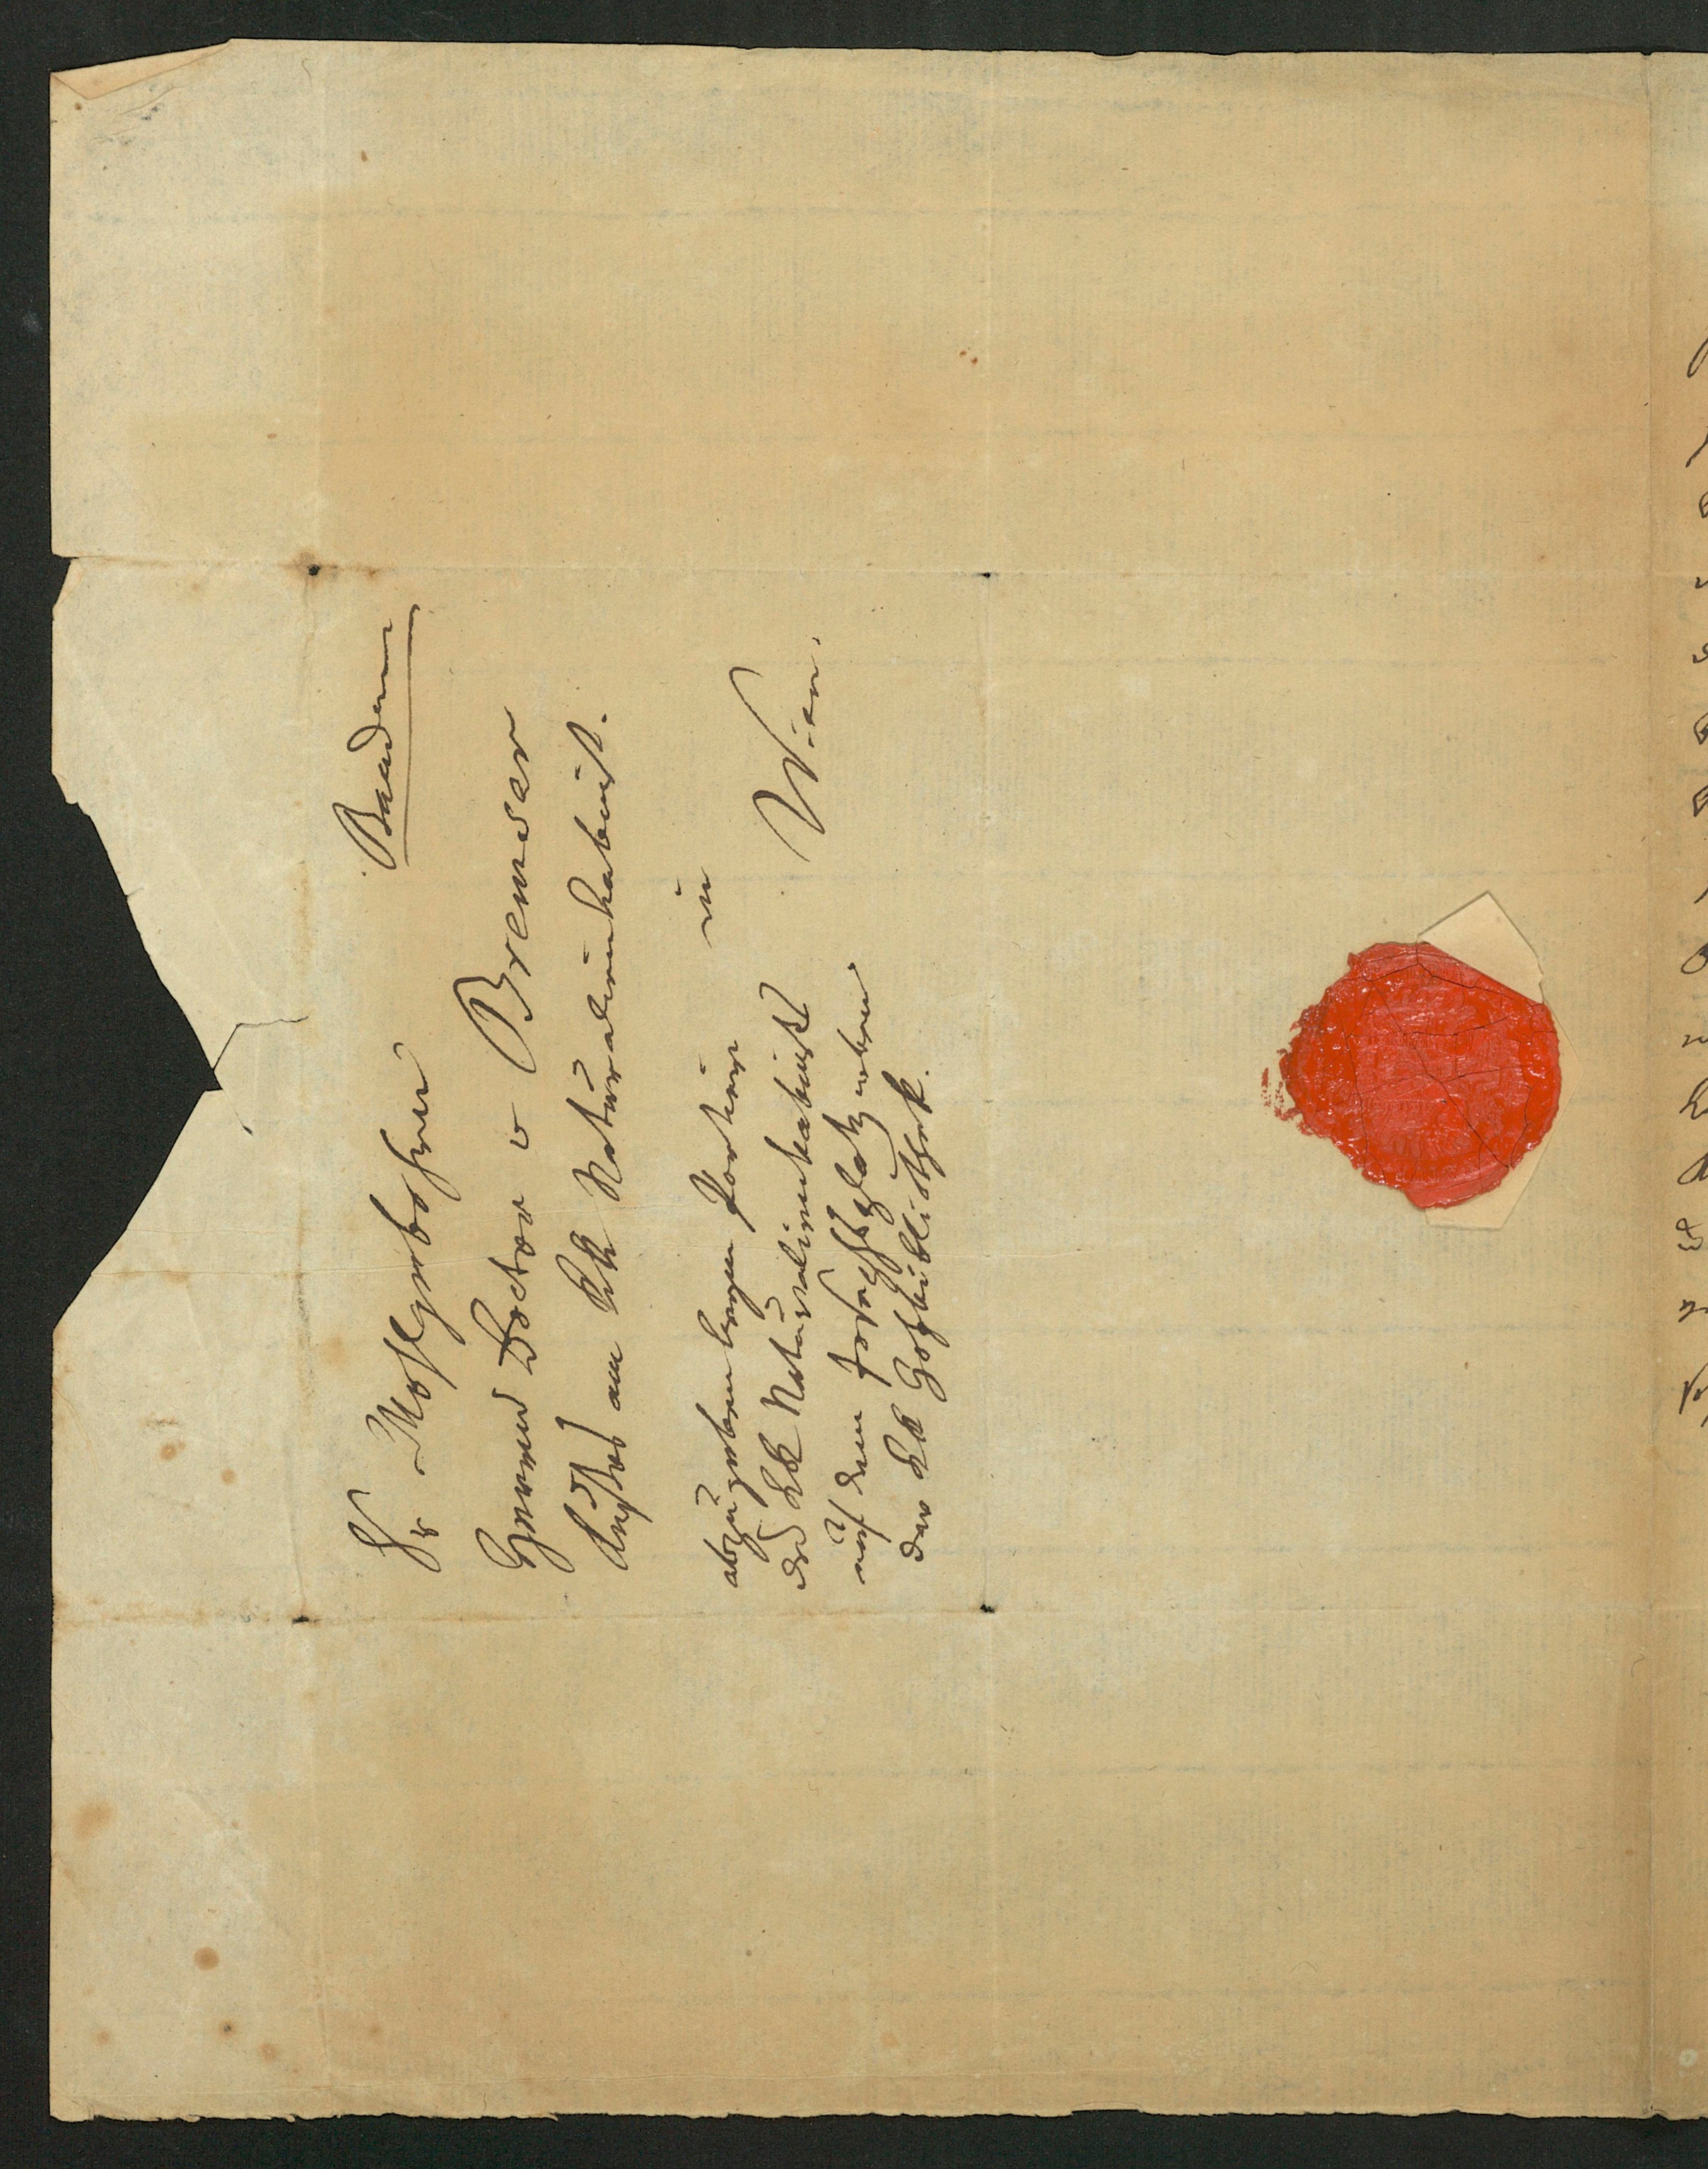 Baaden
Sr Wohlgebohren
Herrn Doctor v Bremser
Custos am KK Naturalienkabinet.
abzugeben beym Portier in Wien.
des KK Naturalienkabinets
auf dem Josephsplatz neben
der KK Hofbibliothek.